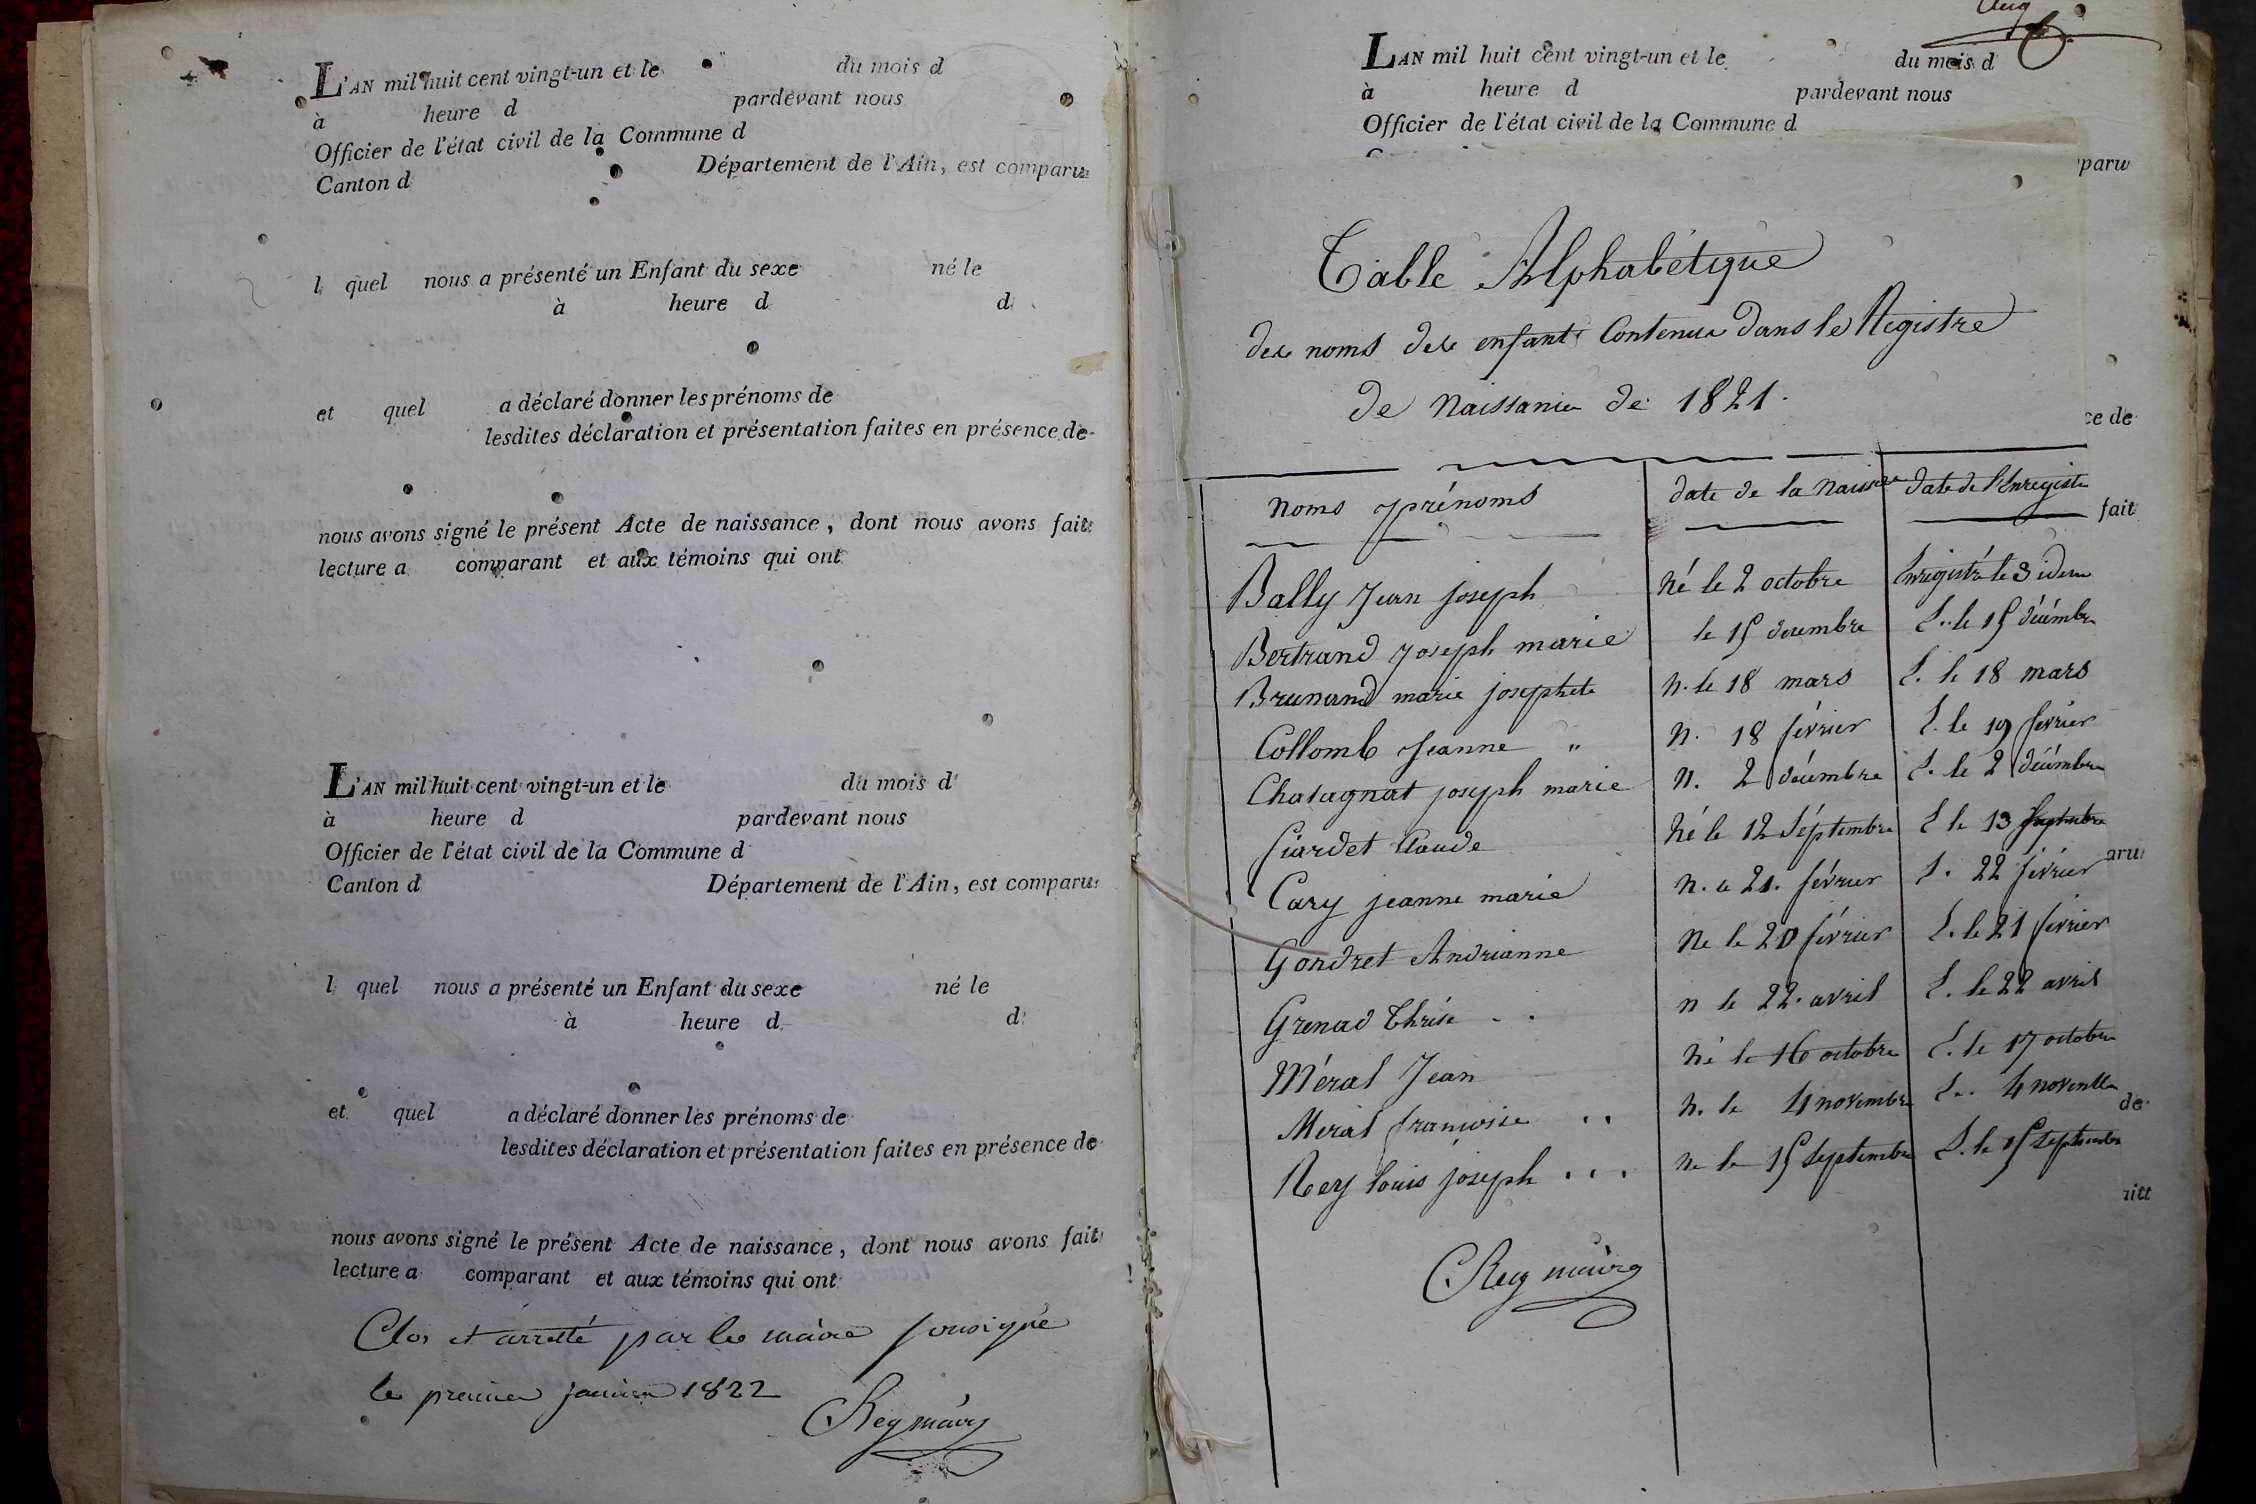 L'AN mil huit cent vingt-un et le du mois d
à heure d pardevant nous
Officier de l'état civil de la Commune d
Canton d Département de l'Ain, est comparu
l quel nous a présenté un Enfant du sexe né le
à heure d d
et quel a déclaré donner les prénoms de
lesdites déclaration et présentation faites en présence de
nous avons signé le présent Acte de naissance, dont nous avons fait
lecture a comparant et aux témoins qui ont
L'AN mil huit cent vingt-un et le du mois d
à heure d pardevant nous
Officier de l'état civil de la Commune d
Canton d Département de l'Ain, est comparu
l quel nous a présenté un Enfant du sexe né le
à heure d d
et quel a déclaré donner les prénoms de
lesdites déclaration et présentation faites en présence de
nous avons signé le présent Acte de naissance, dont nous avons fait
lecture a comparant et aux témoins qui ont
Clos et arretté par le maire sousigné
le premier janvier 1822
Rey maire
LAN mil huit cent vingt-un et le du mois d
à heure d pardevant nous
Officier de l'état civil de la Commune d
paru
Table Alphabétique
des noms des enfants Contenus dans le Registre
de Naissance de 1821.
ce de
noms prénoms date de la Naiss date de l'Enregist
fait
Bally Jean joseph Né le 2 octobre Enregistré le 3 idem
Bertrand joseph marie le 15 décembre E.. le 15 décémbre
Brunand marie josephete N. le 18 mars E. le 18 mars
Collomb Jeanne " N. 18 février E. le 19 février
Chatagnat joseph marie N. 2 décembre E. le 2 décémbre
Claude Né le 12 Séptembre E le 13 septembre
aru
Cary jeanne marie N. le 21. février E. 22 février
Gondret Andrianne Ne le 20 février E. le 21 février
Grenad Thrése . . n le 22. avril E. le 22 avril
Méral Jean Né le 16 octobre E. le 17 octobre
Méral francoise . . N. le 4 novembre E.. 4 novembre
de
Rey louis joseph . . . Ne le 15 septembre E. le 15 septembre
Rey maire